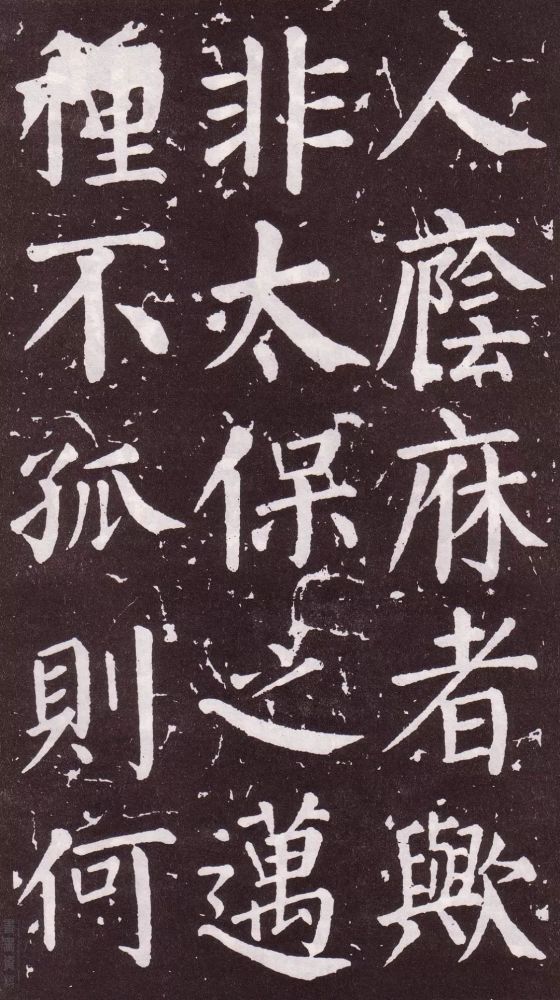 人廕庥者歟
非太保之邁
種不孤則何